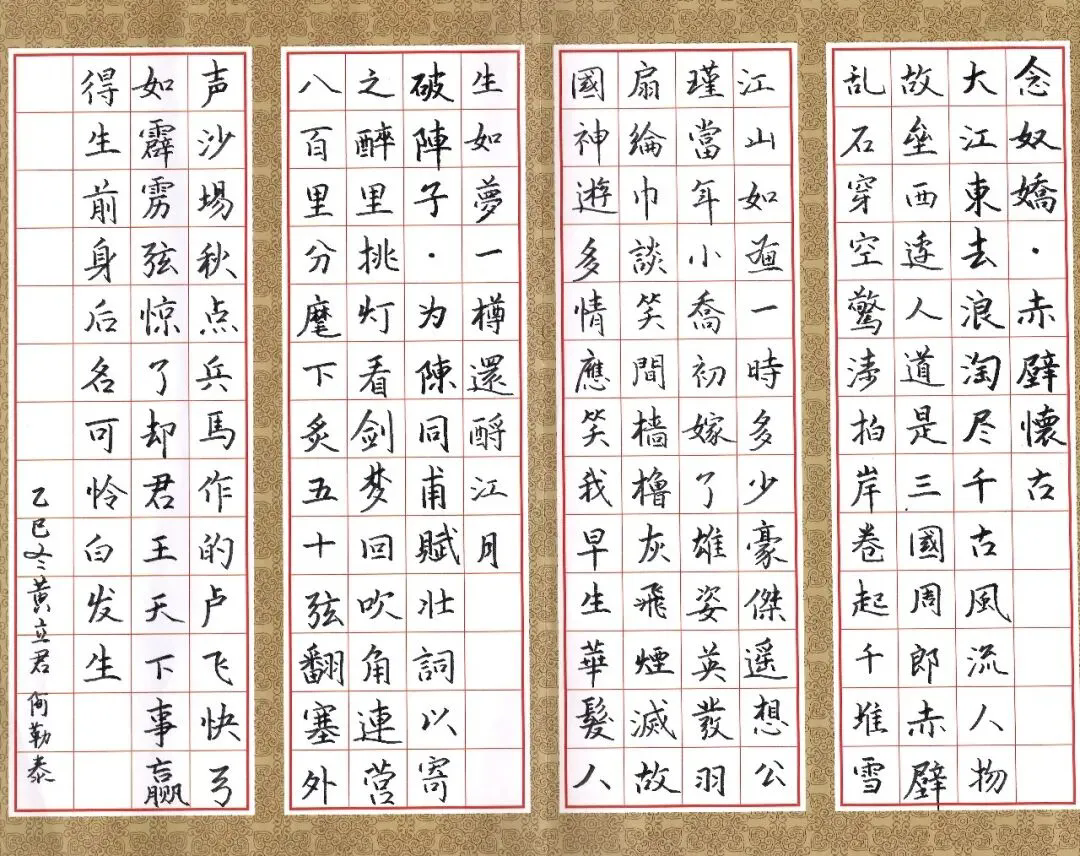 念奴嬌·赤壁懷古
大江東去浪淘尽千古風流人物
故垒西邊人道是三國周郎赤壁
乱石穿空驚涛拍岸卷起千堆雪
江山如畫一時多少豪傑遥想公
瑾當年小喬初嫁了雄姿英發羽
扇綸巾談笑間檣櫓灰飛煙滅故
國神遊多情應笑我早生華髮人
生如夢一樽還酹江月
破陣子·为陳同甫賦壮詞以寄
之醉里挑灯看剑梦回吹角連营
八百里分麾下炙五十弦翻塞外
声沙場秋点兵馬作的卢飞快弓
如霹雳弦惊了却君王天下事赢
得生前身后名可怜白发生
乙巳冬黄立君阿勒泰